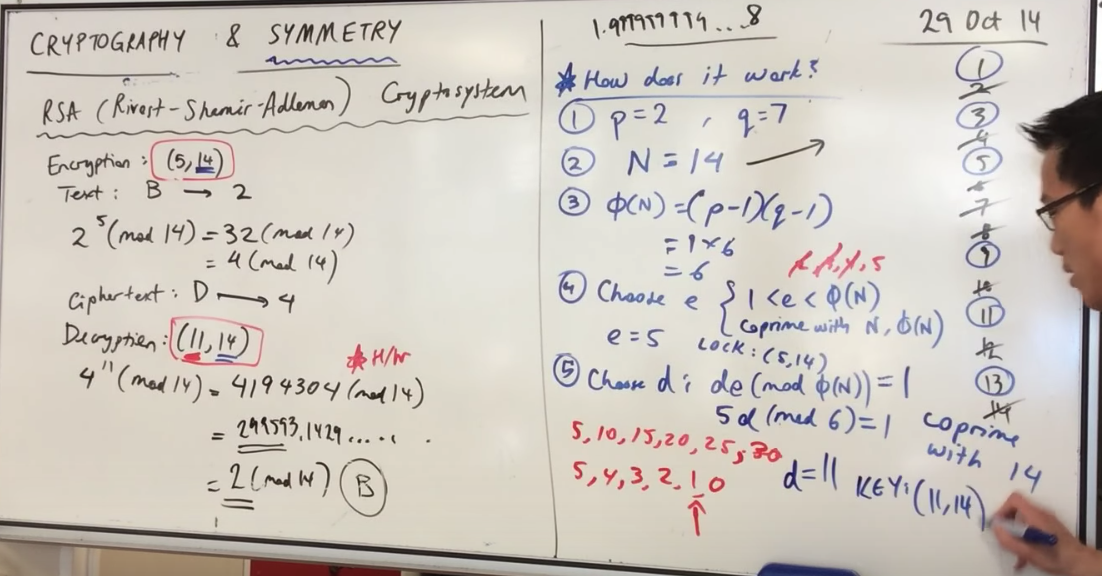 CRYPTOGRAPHY & SYMMETRY
RSA (Rivest-Shamir-Adleman) Cryptosystem
Encryption : (5, 14)
Text : B → 2
2⁵ (mod 14) = 32 (mod 14)
= 4 (mod 14)
Ciphertext : D → 4
Decryption : (11, 14)
* H/W
4¹¹ (mod 14) = 4194304 (mod 14)
= 299593.1429.....
= 2 (mod 14) B
1.999999999...8
* How does it work?
① p=2 , q=7
② N = 14
③ ϕ(N) = (p-1)(q-1)
= 1 × 6
= 6
④ Choose e { 1 < e < ϕ(N)
coprime with N, ϕ(N)
e = 5
LOCK : (5,14)
⑤ Choose d : de (mod ϕ(N)) = 1
5d (mod 6) = 1
5, 10, 15, 20, 25, 30
5, 4, 3, 2, 1, 0
d = 11
KEY: (11,14)
29 Oct 14
1
2
3
4
5
6
7
8
9
10
11
12
13
14
coprime
with 14